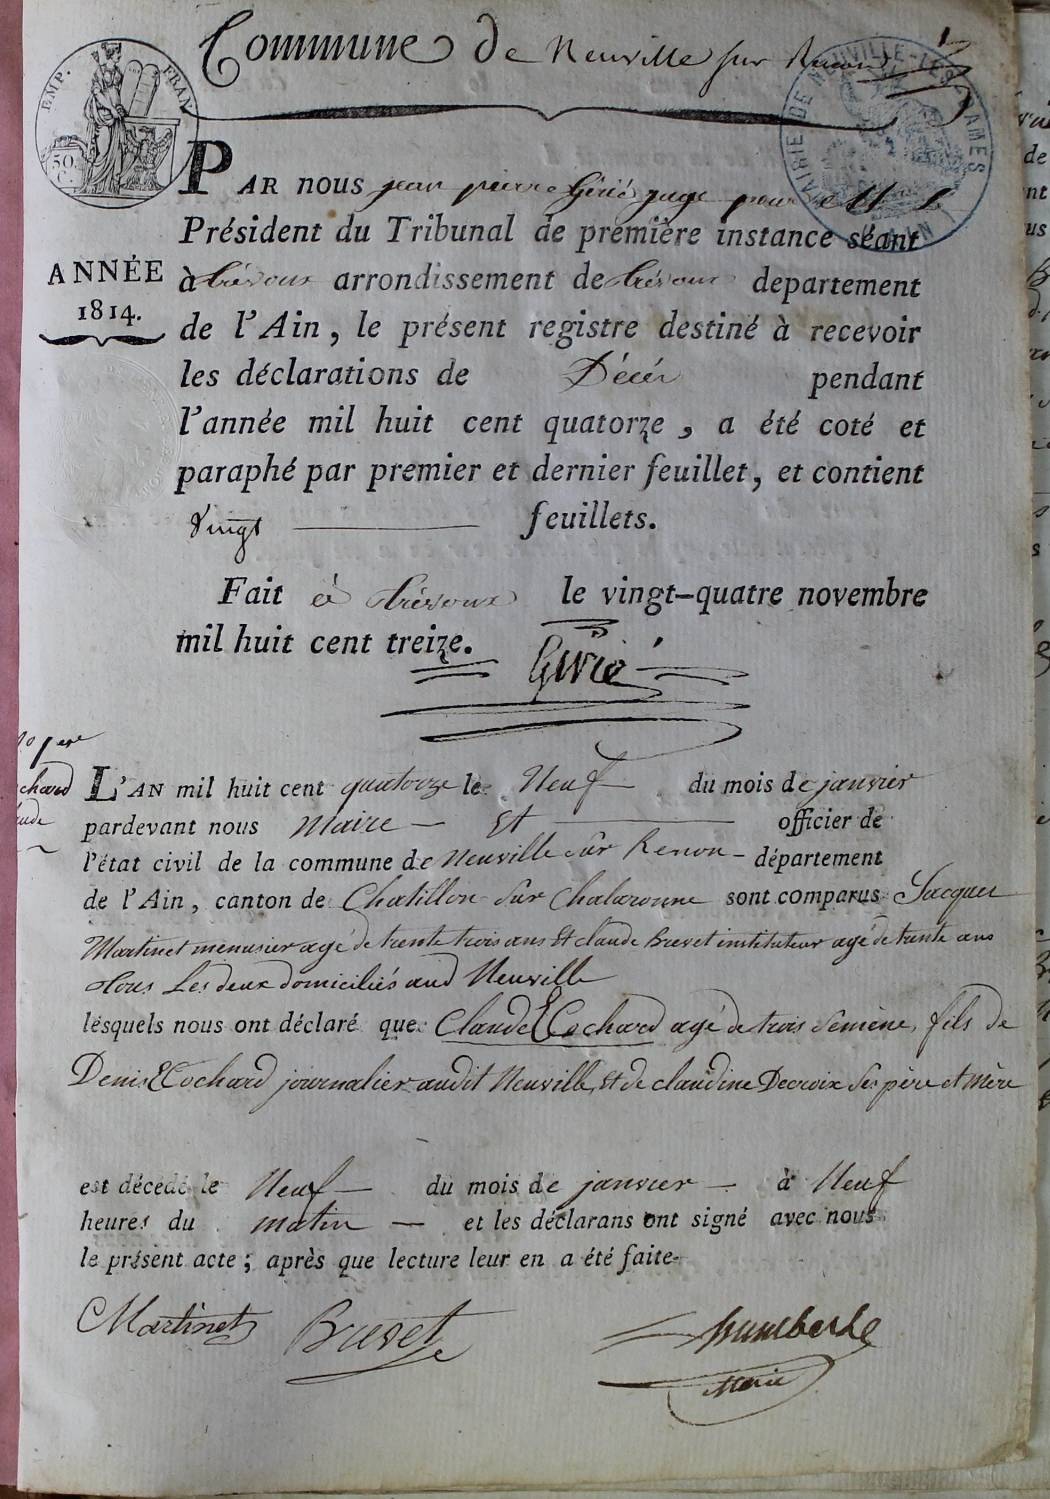 Commune de Neuville sur Renon 1
EMP. FRAN.
50 C.
MAIRIE DE NEUVILLE-LES-DAMES
(AIN)
PAR nous jean pierre Givié juge pour M. le
Président du Tribunal de première instance séant
à trévoux arrondissement de trévoux departement
ANNÉE
1814.
de l'Ain, le présent registre destiné à recevoir
les déclarations de Décés pendant
l'année mil huit cent quatorze, a été coté et
paraphé par premier et dernier feuillet, et contient
vingt feuillets.
Fait à trévoux le vingt-quatre novembre
mil huit cent treize.
Givié
L'AN mil huit cent quatorze le Neuf du mois de janvier
pardevant nous Maire Et officier de
l'état civil de la commune de Neuville sur Renon département
de l'Ain, canton de Chatillon sur Chalaronne sont comparus Jacques
Martinet menusier agé de trente trois ans Et claude Brevet instituteur agé de trente ans
tous Les deux domiciliés aud Neuville
lesquels nous ont déclaré que Claude Cochard agé de trois Semène, fils de
Denis Cochard journalier audit Neuville, Et de claudine Decroix Ses père et mère
est décédé le Neuf du mois de janvier à Neuf
heures du matin et les déclarans ont signé avec nous
le présent acte; après que lecture leur en a été faite
Martinet Brevet humberte
Marie